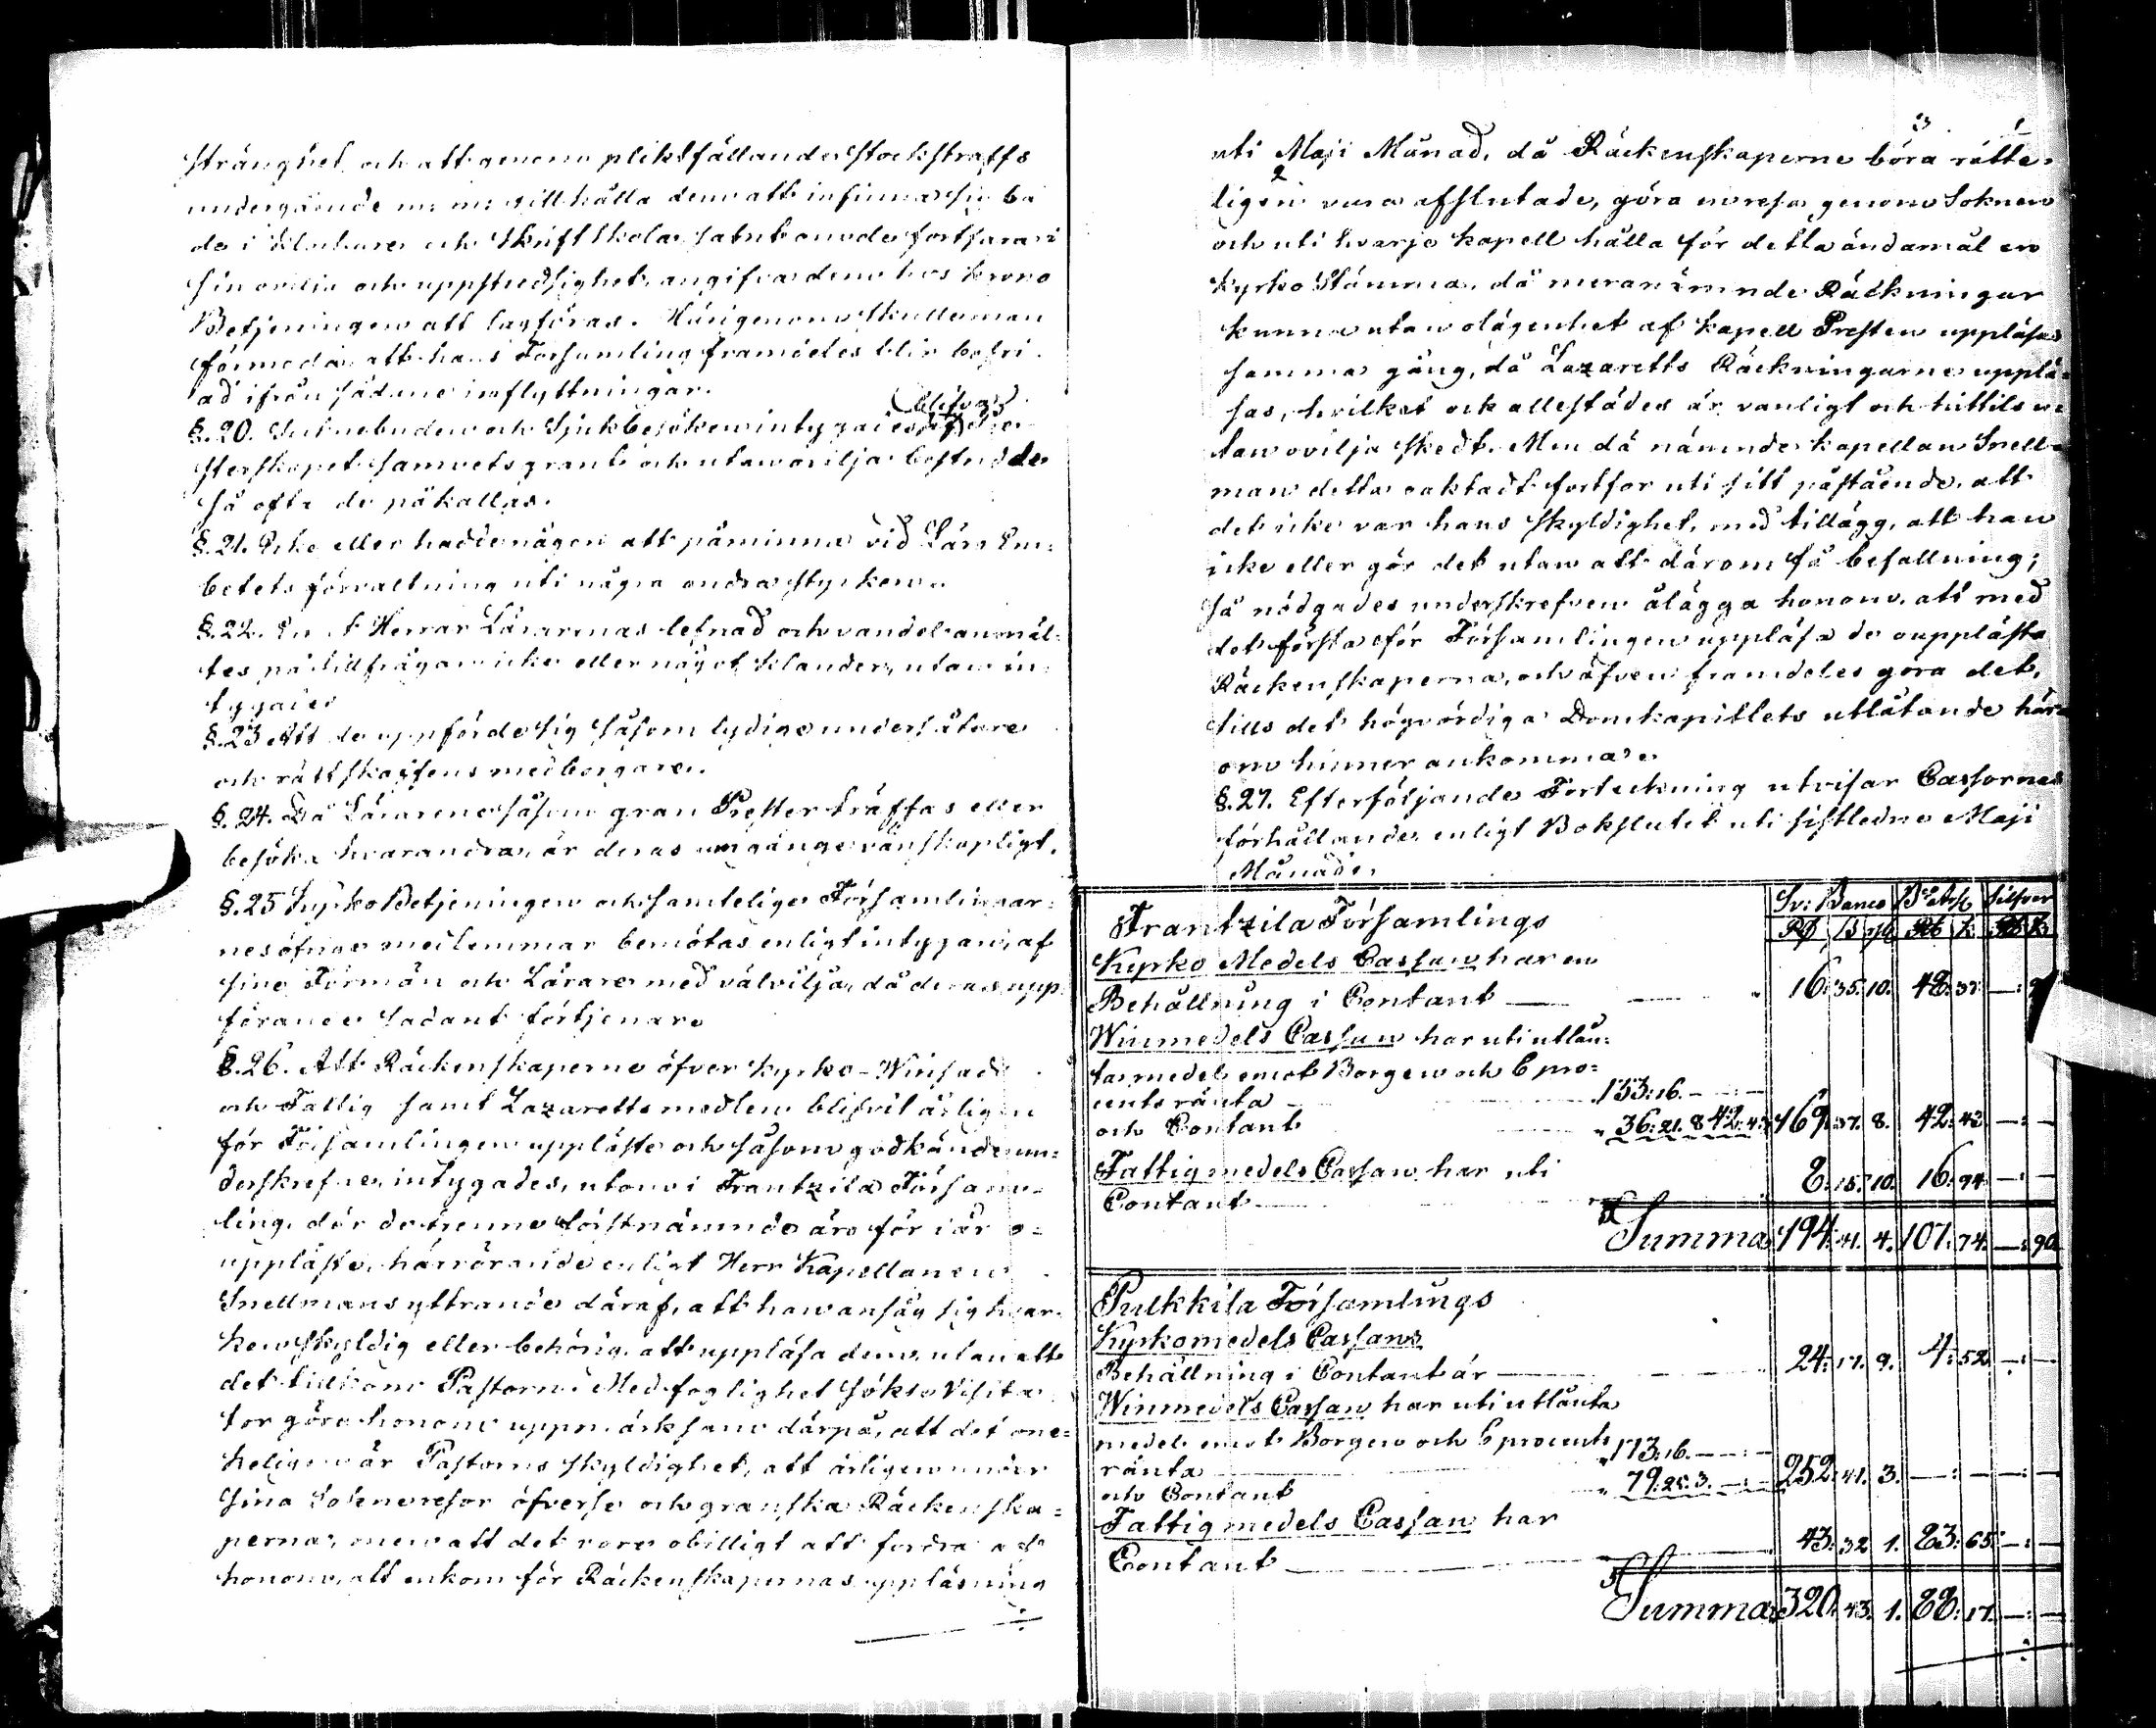 stränghet och att genom pliktfällande Stockstraffs
undergående m: m: tillhålla dem att infinna sig bå
de i  och Skriftskola samt om de fortfara i
sin ovilia och uppstudsighet, angifva dem hos Krono
Betjeningen att lagföras. Härigenom skulle man
förmoda att hans Församling framdeles blir befri
ad ifrån sådane inflyttningar.
§.20. Socknebuden och Sjukbesöken intygades blifva af
sterskapet samvetsgrant och utan ovilja bestridde
så ofta de påkallas.
§.21. Icke eller hade någon att påminna vid Läro Em=
betets förvaltning uti några andra stycken.
§.22. Emot Herrar Lärarenas lefnad och vandel anmäl=
tes på tillfrågan icke eller något klander, utan in=
tygades
§.23 Att de uppförde sig såsom lydige undersåtare
och rättskaffens medborgare.
§.24. Då Lärarene såsom gran Prester träffas eller
besöka hvarandra, är deras umgänge vänskapligt.
§.25 Kyrko Betjeningen och samtelige Församlingar=
nes öfriga medlemmar bemötas enligt intygan, af
sine Förmän och Lärare med välvilja, då deras upp
förande sådant förtjenar.
§.26. Att Räckenskaperne öfver Kyrko- Winsäds
och Fattig samt Lazarettsmedlen blifvit årligen
för Församlingen uppläste och såsom godkände un=
derskrefne, intygades, utom i Frantzila Försam=
ling, där de trenne förstnämnde äro för i år o=
uppläste, härrörande enligt Herr Kapellanen
Snellmans yttrande däraf, att han ansåg sig hvar=
ken skyldig eller behörig att uppläsa dem, utan att
det tillkom Pastorn. Med foglighet sökte Visita
tor göra honom uppmärksam därpå, att det one=
keligen är Pastorns skyldighet, att årligen under
sina Sokneresor öfverse och granska Räckenska=
perna, men att det vore obilligt att fordra af
honom, att enkom för Räckenskapernas uppläsning
23
uti Maji Månad, då Räckenskaperne böra rätte=
ligen vara afslutade, göra en resa genom Soknen
och uti hvarje Kapell hålla för detta ändamål en
Kyrko Stämma, då meranämnde Räckningar
kunna utan olägenhet af Kapell Presten uppläsas
samma gång, då Lazaretts Räckningarne upplä=
sas, hvilket ock allestädes är vanligt och hittils u=
tan ovilja skedt. Men då nämnde Kapellan Snell=
man detta oaktadt fortfor uti sitt påstående, att
det icke var hans skyldighet, med tillägg, att han
icke eller gör det utan att därom få befallning;
så nödgades underskrefven ålägga honom, att med
det första för Församlingen uppläsa de oupplästa
Räckenskaperna, och äfven framdeles göra det,
tills det högvördiga Domkapitlets utlåtande här=
om hinner ankomma.
§.27. Efterföljande Förteckning utvisar Cassornes
förhållande, enligt Bokslutet uti sistledne Maji
Månad.
Sv: Banco Bco Ass Silfver
Rd s rst Rb k Rb k
Frantzila Församlings
Kyrko Medels Cassan har en
Behållning i Contant 16: 35. 10. 48: 37 —: 90
Winmedels Cassan har uti utlån=
ta medel emot Borgen och 6 pro=
cents ränta 133: 16. — : —
och Contant " 36: 21. 8 42: 43 169: 37. 8. 42: 43 —: —
Fattigmedels Cassan har uti
Contant 8: 15. 10. 16: 94 —: —
Summa 194: 41. 4. 107: 74. —: 90
Pulkkila Församlings
Kyrkomedels Cassans
Behållning i Contant är 24: 17. 9. 4: 52 —: —
Winmedels Cassan har uti utlånta
medel emot Borgen och 6 procents
ränta 173: 16. — : —
och Contant " 79: 25. 3. — : — 252: 41. 3. —: — —: —
Fattigmedels Cassan har
Contant 43: 32 1. 83: 65 —: —
Summa 320: 43. 1. 88: 17. —: —